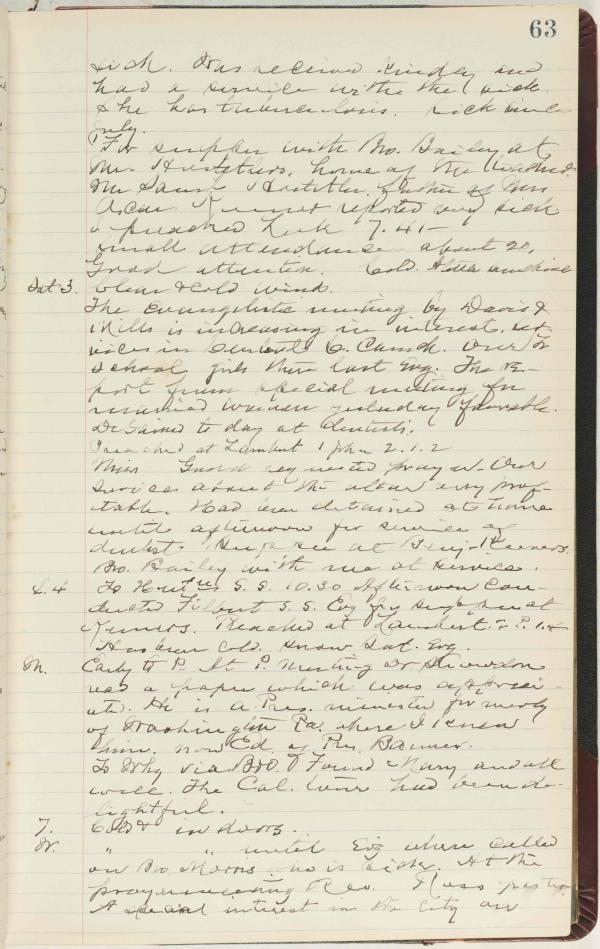 63
sick. Was received kindly and
had a service with the sick.
She has tuberculosis. Sick since
July.
For supper with Bro. Bailey at
Mr. Hostetlers, home of the
Mr Saml Hostetler, father of Mrs
reported very sick
preached Luk 7. 41-
small attendance about 20,
Good attention. Cold.
Sat 3. Clear & cold wind.
The evangelistic meeting by Davis &
Mills is increasing in interest, ser-
vices in Central C. Church. Over
school girls there last Evg. The re-
port from special meeting for
married women yesterday favorable.
Detained to day at dentists.
Preached at Lambert 1 John 2.1.2
Miss requested prayer. Our
services about the altar very prof-
itable. Had been detained at home
until afternoon for service of
dentist. at Benj.
Bro. Bailey with me at service.
S. 4 To S. S. 10.30 Afternoon Con-
ducted Filbert S. S. Evg for supper at
Preached at Lambert
Has been cold. Snow Sat. Evg.
M. Early to P. At P. Meeting Dr Snowden
read a paper which was appreci-
ated. He is a Pres. minister formerly
of Washington Pa. where I knew
him. now Ed. of Pres. Banner.
To via B&O. Found Mary and all
well. The Cal. had been de-
lightful.
T. Cold & indoors.
W. " " until Evg where called
on Bro. Morris who is sick. At the
prayermeeting Rev. Ross
A special interest in the city on